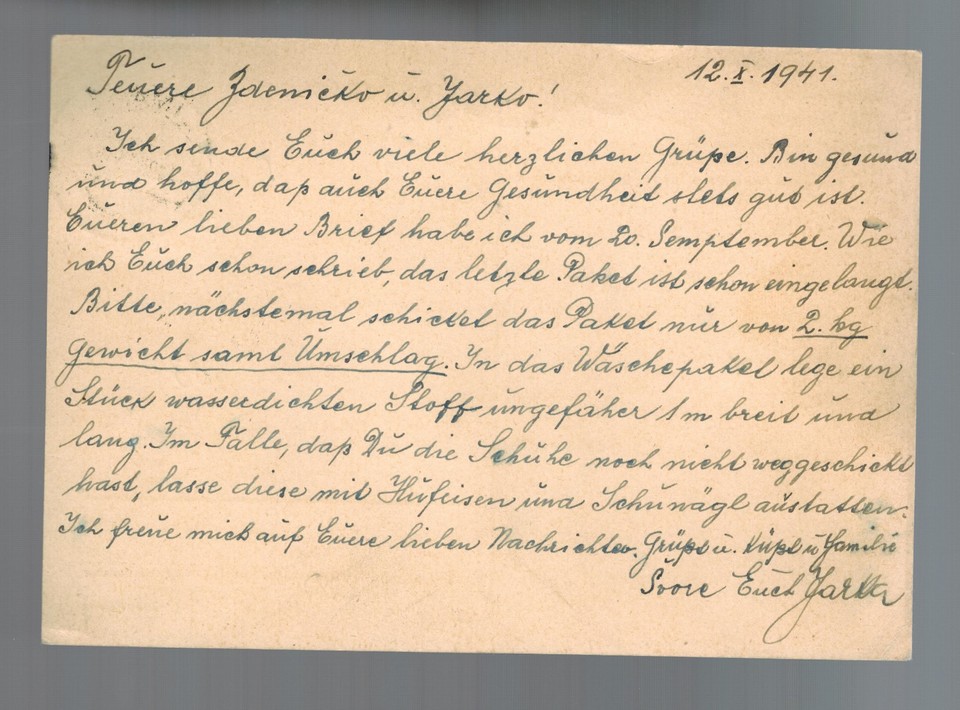 12.X.1941.
Teuere Zdeničko u. Jarko!
Ich sende Euch viele herzlichen Grüße. Bin gesund
und hoffe, daß auch Euere Gesundheit stets gut ist.
Eueren lieben Brief habe ich vom 20. Semptember. Wie
ich Euch schon schrieb, das letzte Paket ist schon eingelangt.
Bitte, nächstemal schicket das Paket nur von 2. kg
Gewicht samt Umschlag. In das Wäschepaket lege ein
Stück wasserdichten Stoff ungefäher 1m breit und
lang. Im Falle, daß Du die Schuhe noch nicht weggeschickt
hast, lasse diese mit Hufeisen und Schunägl austatten.
Ich freue mich auf Euere lieben Nachrichten. Grüßt u. Küßt u Familie
Euch Jarka